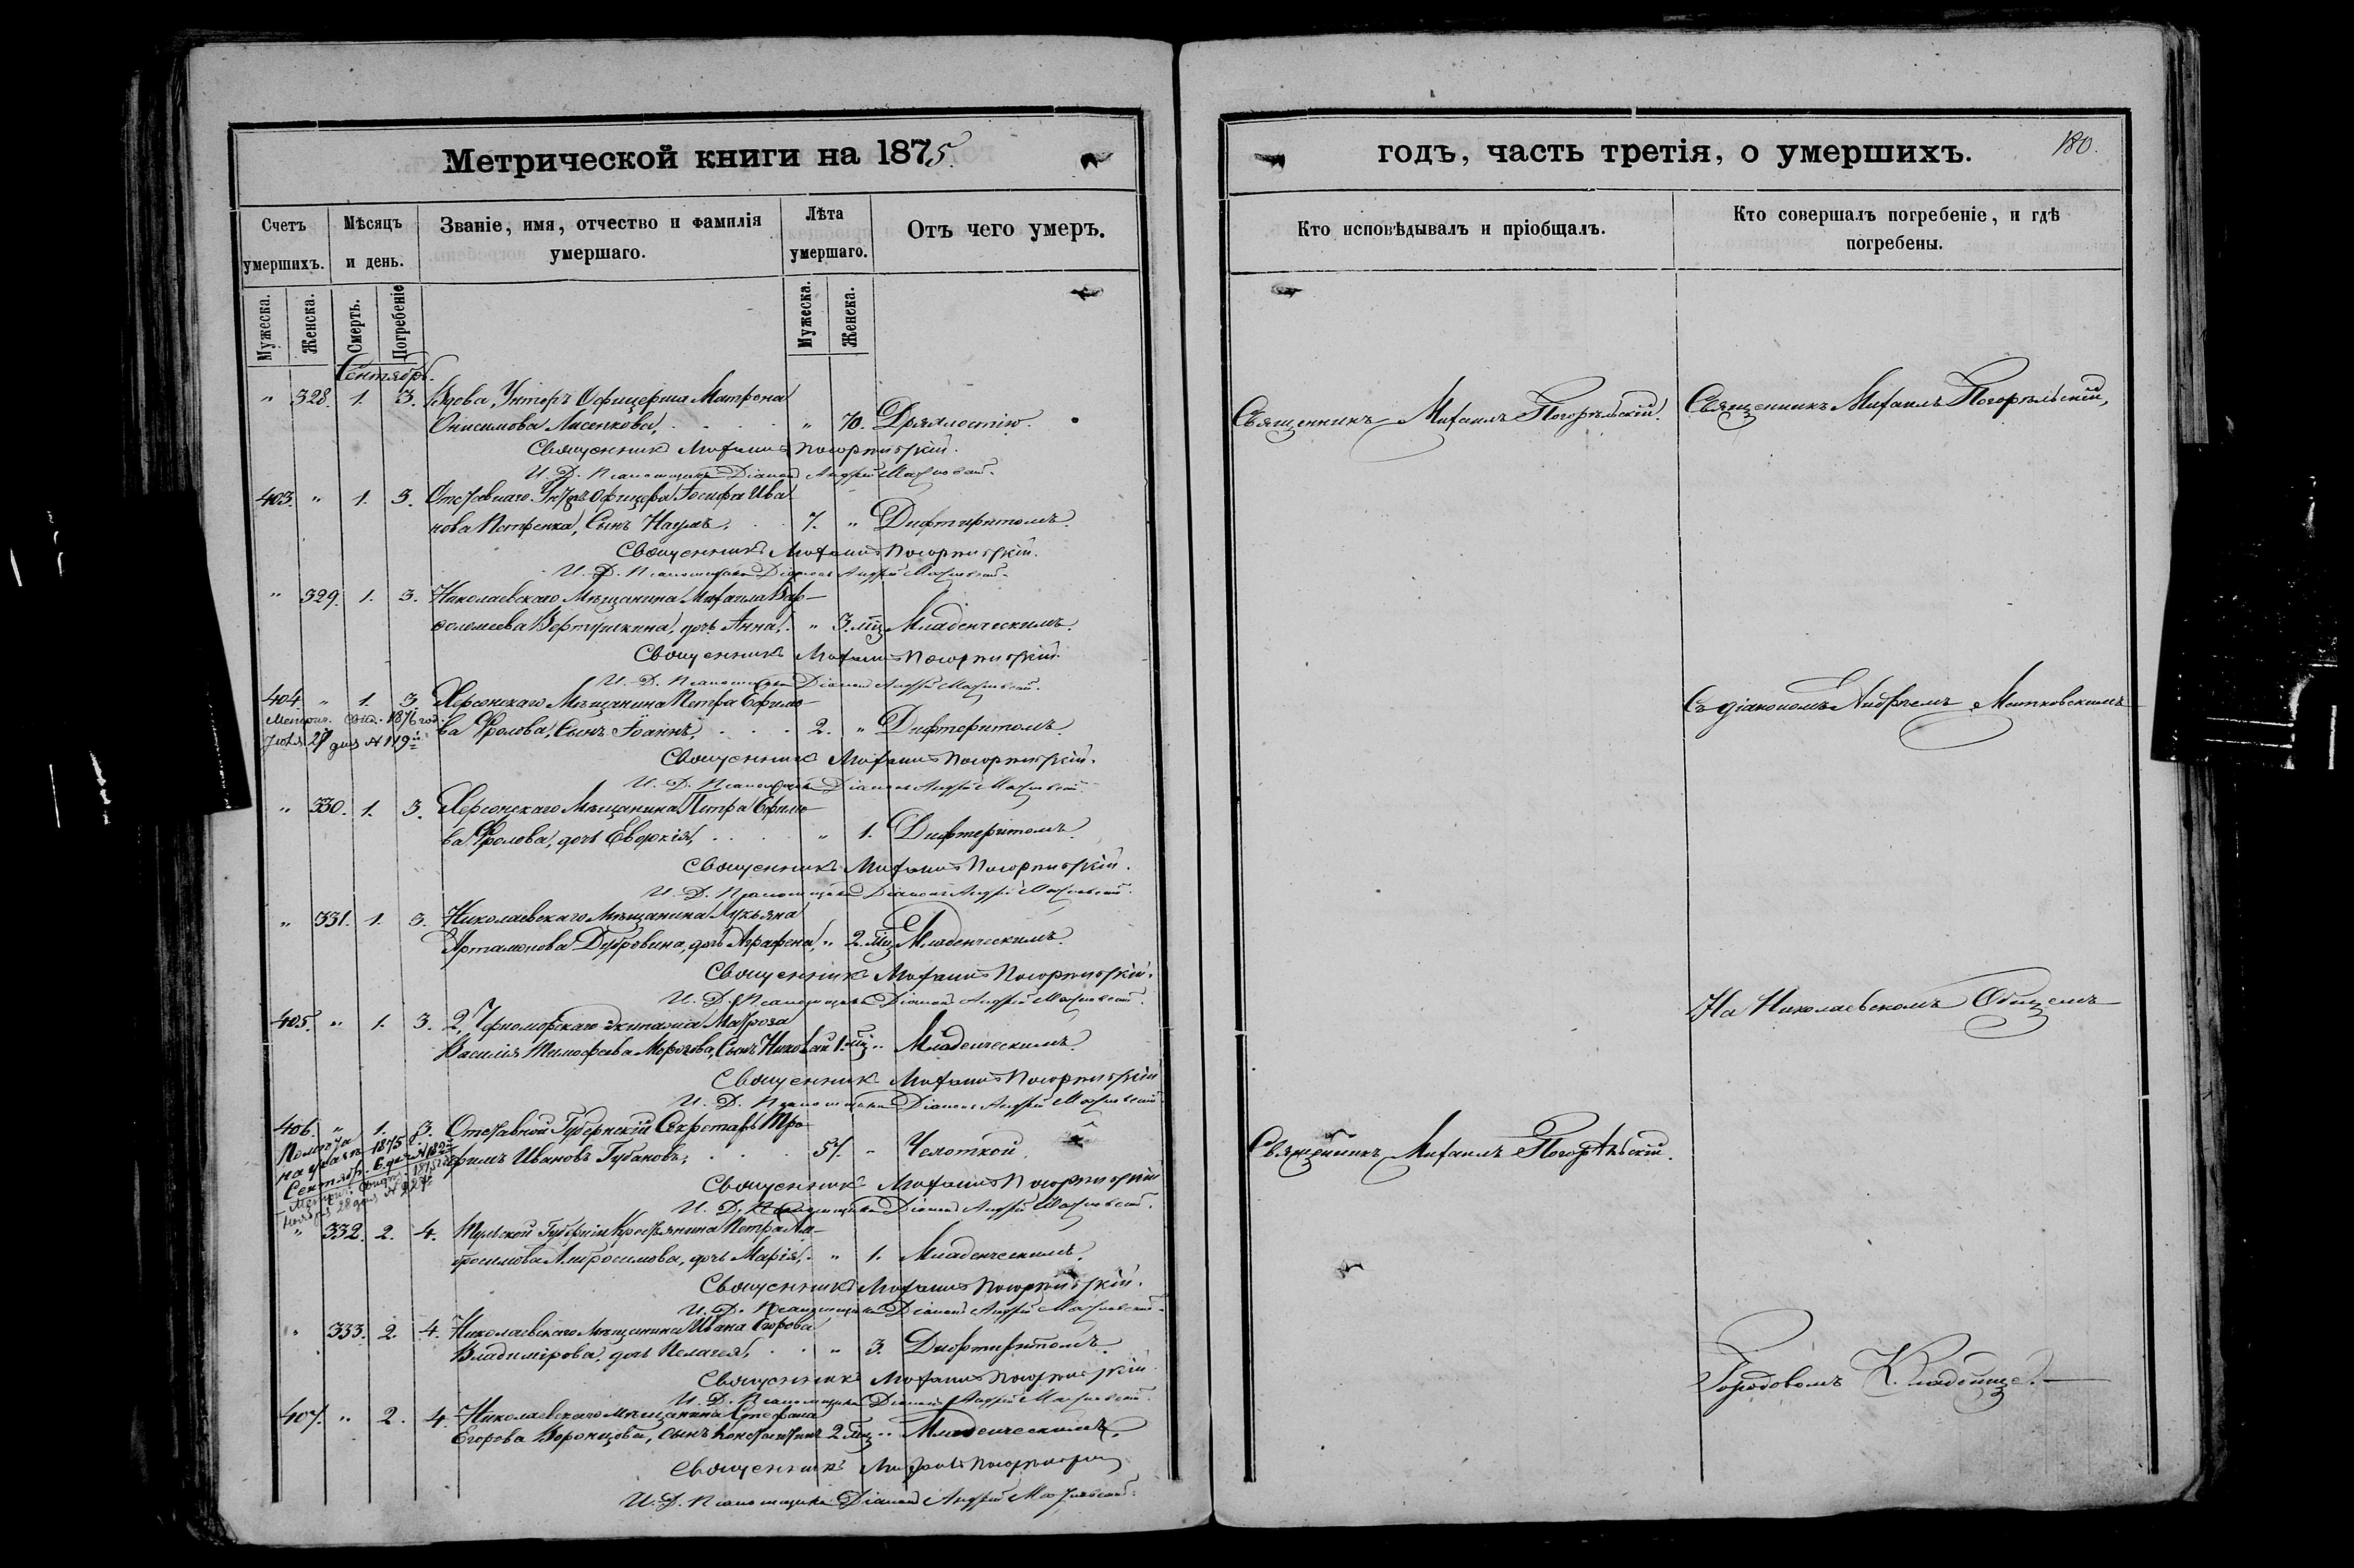 Метрической книги на 1875
Счетъ умершихъ.
Мѣсяцъ и день.
Званіе, имя, отчество и фамилія умершаго.
Лѣта умершаго.
Отъ чего умеръ.
Мужеска.
Женска.
Смерть.
Погребеніе
Мужеска.
Женска.
Сентябрь.
" 328. 1. 3. Вдова Унтеръ Офицерша Матрона
Онисимова Лисенкова, " 70. Дряхлостію.
Священникъ Михаилъ Погорѣльскій.
И. Д. Псаломщика Діаконъ Андрей
403. " 1. 3. Отставнаго Унтеръ Офицера Іосифа Ива
нова Петренка, Сынъ Наумъ, 7. " Дифтиритомъ.
Священникъ Михаилъ Погорѣльскій.
И. Д. Псаломщика Діаконъ Андрей
" 329. 1. 3. Николаевскаго Мѣщанина Михаила Вар-
ѳоломеева Вертушкина, дочь Анна, " 3. мц Младенческимъ.
Священникъ Михаилъ Погорѣльскій.
И. Д. Псаломщика Діаконъ Андрей
404. " 1. 3. Херсонскаго Мѣщанина Петра Ефимо-
ва Фролова, Сынъ Іоаннъ, 2. " Дифтеритомъ.
Метрич. свид. 1876 год.
Іюля 27 дня № 119й
Священникъ Михаилъ Погорѣльскій.
И. Д. Псаломщика Діаконъ Андрей
" 330. 1. 3. Херсонскаго Мѣщанина Петра Ефимо-
ва Фролова, дочь Евдокія, " 1. Дифтеритомъ.
Священникъ Михаилъ Погорѣльскій.
И. Д. Псаломщика Діаконъ Андрей
" 331. 1. 3. Николаевскаго Мѣщанина Лукьяна
Артамонова Дубровина, дочь Аграфена, " 2. мц Младенческимъ.
Священникъ Михаилъ Погорѣльскій.
И. Д. Псаломщика Діаконъ Андрей
405. " 1. 3. 2. Черноморскаго экипажа Матроза
Василія Тимофеева Морозова, Сынъ Николай 1. мц " Младенческимъ.
Священникъ Михаилъ Погорѣльскій
И. Д. Псаломщика Діаконъ Андрей
406. " 1. 3. Отставной Губернскій Секретарь Тро-
фимъ Ивановъ Губановъ, 57. " Чахоткой.
1875 г.
Сентяб. 6 дня № 182й
Метрич. свид. 1875 г.
Ноября 28 дня № 227
Священникъ Михаилъ Погорѣльскій
И. Д. Псаломщика Діаконъ Андрей
" 332. 2. 4. Тульской Губерніи Крестьянина Петра Ам-
бросимова Амбросимова, дочь Марія, " 1. Младенческимъ.
Священникъ Михаилъ Погорѣльскій.
И. Д. Псаломщика Діаконъ Андрей
" 333. 2. 4. Николаевскаго Мѣщанина Ивана Егорова
Владимірова, дочь Пелагея, " 3. Дифтиритомъ.
Священникъ Михаилъ Погорѣльскій
И. Д. Псаломщика Діаконъ Андрей
407. " 2. 4. Николаевскаго мѣщанина Стефана
Егорова Воронцова, сынъ Константинъ 2 мц " Младенческимъ.
Священникъ Михаилъ Погорѣльскій
И. Д. Псаломщика Діаконъ Андрей
годъ, часть третія, о умершихъ.
180.
Кто исповѣдывалъ и пріобщалъ.
Кто совершалъ погребеніе, и гдѣ погребены.
Священникъ Михаилъ Погорѣльскій.
Священникъ Михаилъ Погорѣльскій,
Съ діакономъ Андреемъ
На Николаевскомъ Общемъ
Священникъ Михаилъ Погорѣльскій.
Городовомъ Кладбище.